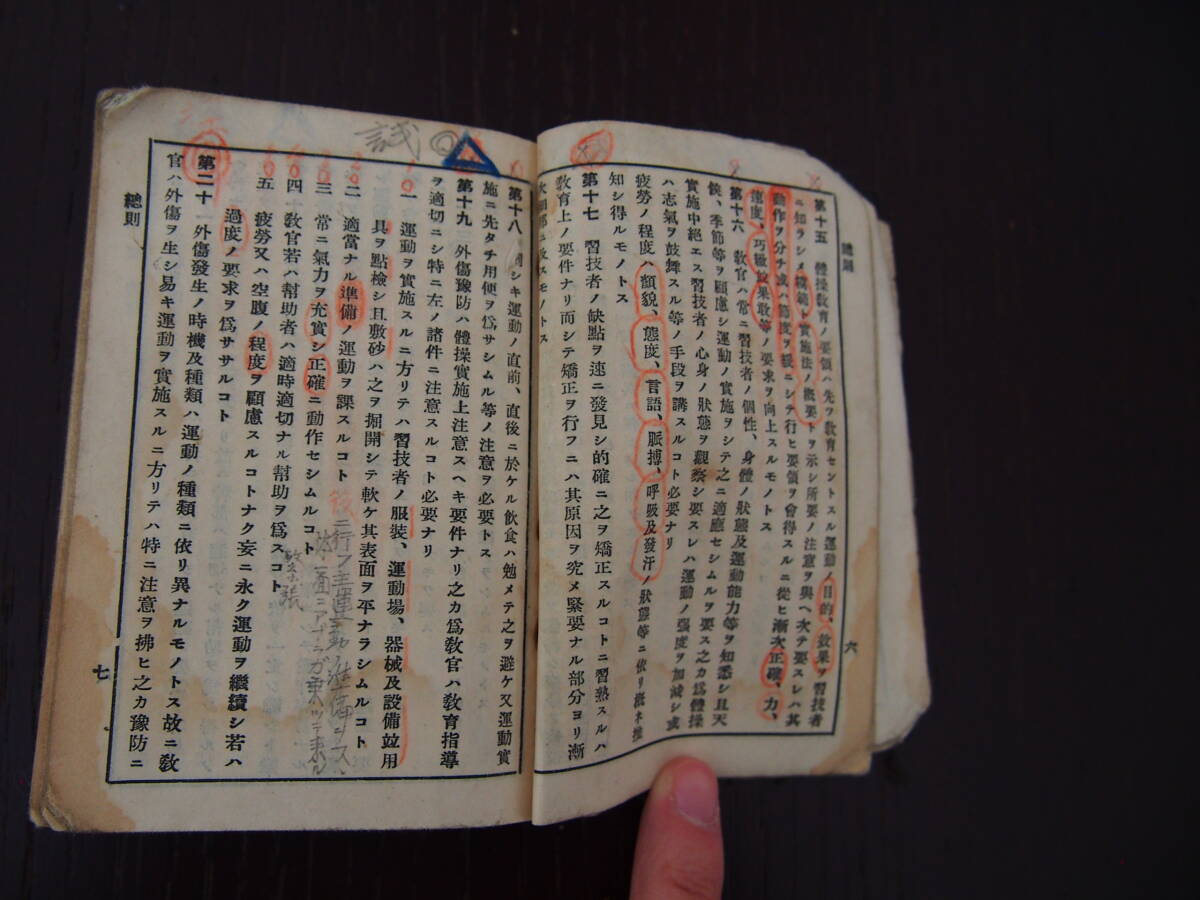 總則
六
第十五 體操教育ノ要領ハ先ヲ教育セントスル運動ノ目的、效果ヲ習技者
ニ知ラシメ模範ト實施法ノ概要トヲ示シ所要ノ注意ヲ與ヘ次テ要スレハ其
動作ヲ分チ或ハ節度ヲ緩ニシテ行ヒ要領ヲ會得スルニ從ヒ漸次正確、力、
速度、巧緻、果敢等ノ要求ヲ向上スルモノトス
第十六 教官ハ常ニ習技者ノ個性、身體ノ狀態及運動能力等ヲ知悉シ且天
候、季節等ヲ顧慮シ運動ノ實施ヲシテ之ニ適應セシムルヲ要ス之カ爲體操
實施中絕エス習技者ノ心身ノ狀態ヲ觀察シ要スレハ運動ノ强度ヲ加減シ或
ハ志氣ヲ鼓舞スル等ノ手段ヲ講スルコト必要ナリ
疲勞ノ程度ハ顏貌、態度、言語、脈搏、呼吸及發汗ノ狀態等ニ依リ槪ネ推
知シ得ルモノトス
第十七 習技者ノ缺點ヲ速ニ發見シ的確ニ之ヲ矯正スルコトニ習熟スルハ
教育上ノ要件ナリ而シテ矯正ヲ行フニハ其原因ヲ究メ緊要ナル部分ヨリ漸
次細部ニ及スモノトス
試
第十八 シキ運動ノ直前、直後ニ於ケル飲食ハ勉メテ之ヲ避ケ又運動實
施ニ先タチ用便ヲ爲サシムル等ノ注意ヲ必要トス
第十九 外傷豫防ハ體操實施上注意スヘキ要件ナリ之カ爲教官ハ教育指導
ヲ適切ニシ特ニ左ノ諸件ニ注意スルコト必要ナリ
一 運動ヲ實施スルニ方リテハ習技者ノ服裝、運動場、器械及設備竝用
具ヲ點檢シ且敷砂ハ之ヲ掘開シテ軟ケ其表面ヲ平ナラシムルコト
二 適當ナル準備ノ運動ヲ課スルコト
後ニ行フ主運動ノ準備ニスル
三 常ニ氣力ヲ充實シ正確ニ動作セシムルコト
四 教官若ハ幇助者ハ適時適切ナル幇助ヲ爲スコト
五 疲勞又ハ空腹ノ程度ヲ顧慮スルコトナク妄ニ永ク運動ヲ繼續シ若ハ
過度ノ要求ヲ爲ササルコト
第二十 外傷發生ノ時機及種類ハ運動ノ種類ニ依リ異ナルモノトス故ニ教
官ハ外傷ヲ生シ易キ運動ヲ實施スルニ方リテハ特ニ注意ヲ拂ヒ之カ豫防ニ
總則
七